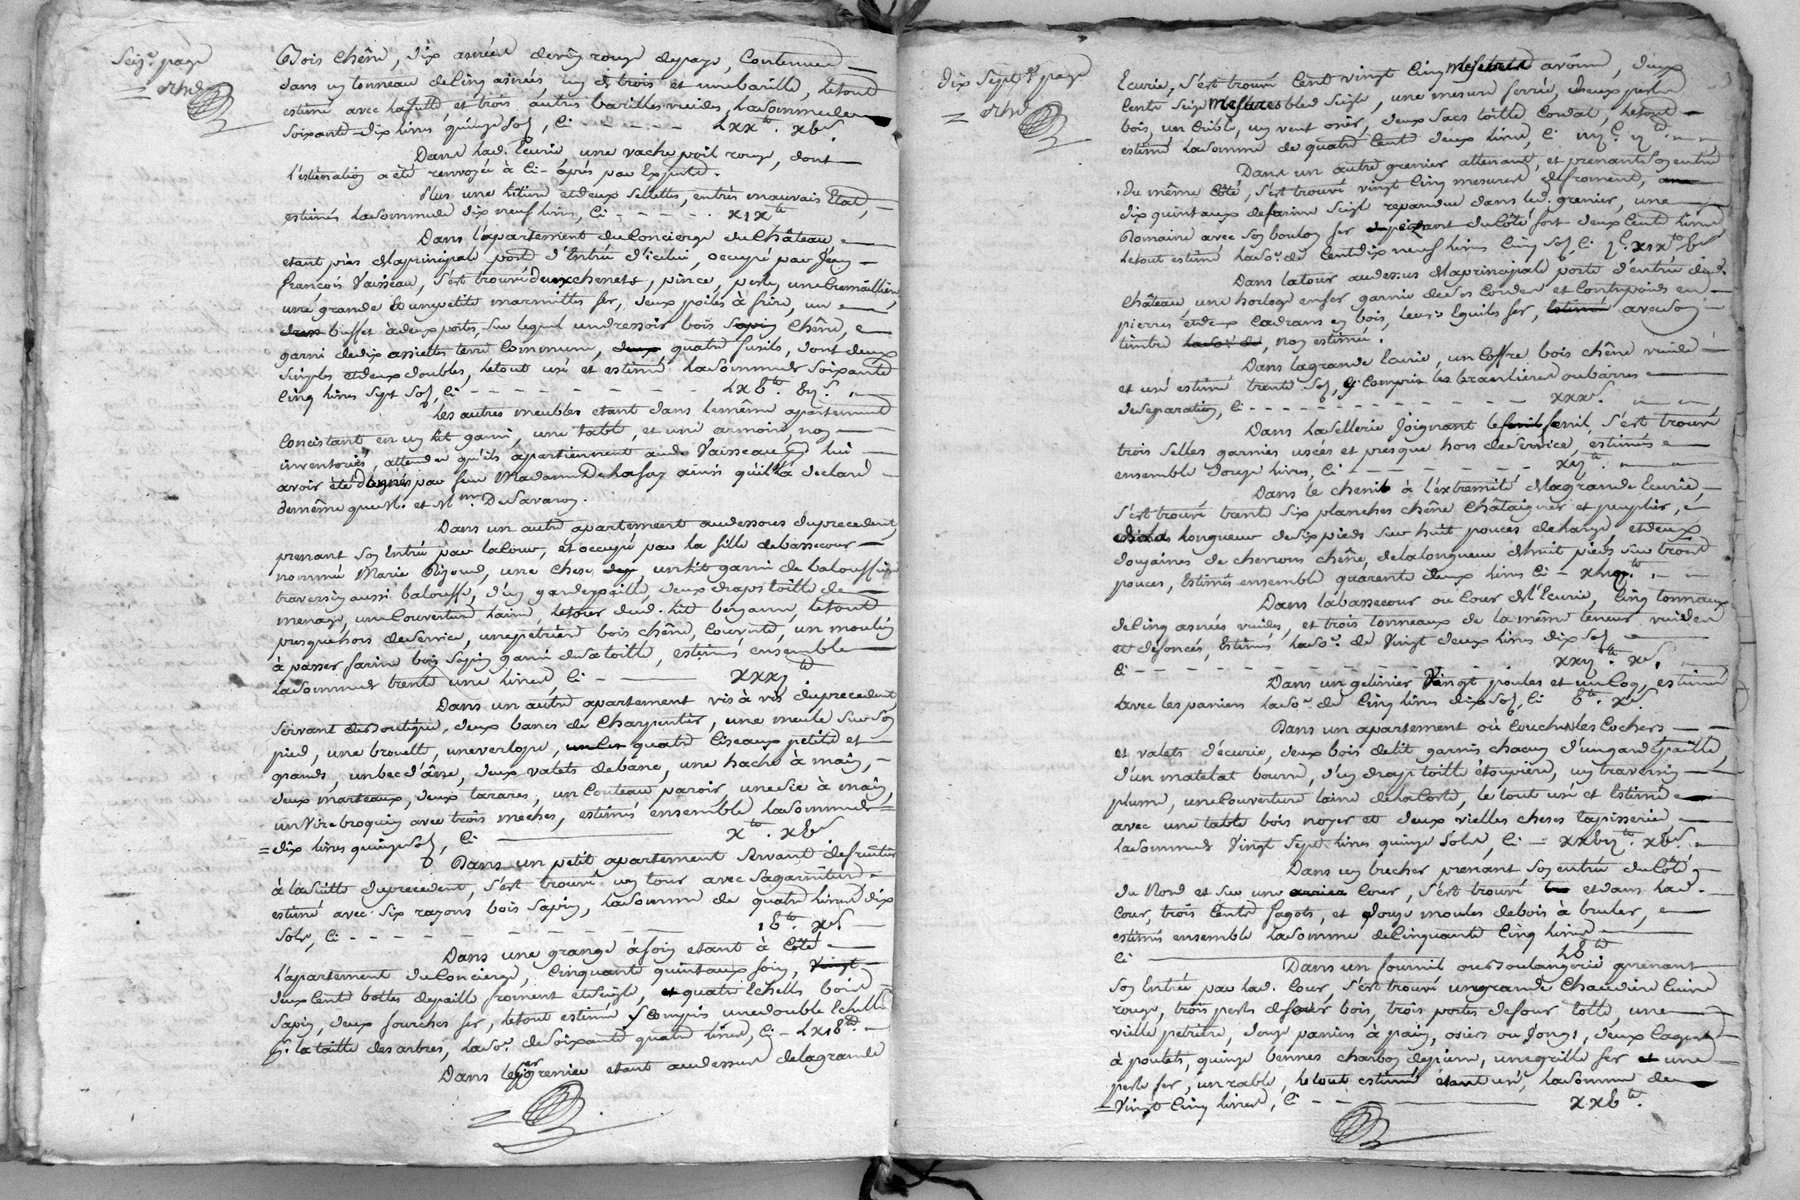 Seiz.e page
Bois chêne, dix asnées de vin rouge du pays, contenues
dans un tonneau de cinq asnées, un de trois et une barille, le tout
estimé avec la futte, et trois autres barilles vuides, la somme de
soixante-dix livres quinze sols, ci - - - - - Lxx.tt xv.s
Dans lad. Ecurie, une vache poil rouge, dont
l'estimation a été renvoyée à ci-après par Experts.
Plus une litière et deux sellettes, en très mauvais Etat,
estimés la somme de dix neuf livres, ci - - - - . xix.tt
Dans l'apartement du concierge du Château,
etant près de la principale porte d'Entrée d'icelui, occupé par Jean
françois Vaisseau, s'est trouvé deux chenets, pince, perles, une Cremaillère,
une grande et une petite marmittes fer, deux poiles à frire, un
buffet à deux portes, sur lequel un dressoir bois sapin Chêne,
garni de dix assiettes terre commune, deux quatre fusils, dont deux
simples et deux doubles, le tout usé et estimé la somme de soixante
cinq livres sept sols, ci - - - - - - - - Lxv.tt vii.s
Les autres meubles etant dans le même apartement
concistant en un lit garni, une table, et une armoire, non
inventoriés, attendu qu'ils apartiennent aud. Vaisseau, lui
avoir été donnés par feu Madame De Lafay ainsi qu'il l'a déclaré
de même que M. et M.me De Savaron.
Dans un autre apartement au dessous du precedent,
prenant son Entrée par la cour, et occupé par la fille de bassecour
nommée Marie Rigoud, une chese, un lit garni de balouffière
traversin aussi balouffe, d'un gardepaille, deux draps toille de
menage, une couverture laine, le tour dud. lit bergame, le tout
presque hors de service, une petrière bois chêne, couverte, un moulin
à passer farine bois sapin garni de sa toille, estimés ensemble
la somme de trente une livres, ci - ——— xxxj.tt
Dans un autre apartement vis à vis du precedent
servant de Boutique, deux bancs de charpentier, une meule sur son
pied, une brouette, une verlope, quatre ciseaux petits et
grands, un bec d'âne, deux valets de banc, une hache à main,
deux marteaux, deux tarares, un couteau paroir, une scie à main,
un Virebroquin avec trois meches, estimés ensemble la somme de
dix livres quinze sols, ci ——— x.tt xv.s
Dans un petit apartement servant de fruitier
à la suitte du precedent, s'est trouvé un tour avec sa garniture
estimé avec six rayons bois sapin, la somme de quatre livres dix
sols, ci - - - - - - - iv.tt x.s
Dans une grange à foin etant à côté
l'apartement du concierge, cinquante quintaux foin, vingt
deux cents bottes de paille froment et seigle, et quatre Echelles bois
sapin, deux fourches fer, le tout estimé, y compris une double Echelle
pr. la taille des arbres, la so.e de soixante quatre livres, ci - Lxiv.tt
Dans le 1er grenier etant au dessus de la grande
Dix sept.e page
Ecurie, s'est trouvé cent vingt cinq mesures avoine, deux
cents seize mesures bled seigle, une mesure ferrée, deux perles
bois, un crible, un vent osier, deux sacs toille Condat, le tout
estimé la somme de quatre cent deux livres, ci iiij.c ij.tt
Dans un autre grenier attenant, et prenant son entrée
du même côté, s'est trouvé vingt cinq mesures de froment,
dix quintaux de farine seigle repandue dans led. grenier, une
Romaine avec son boulon fer du côté fort deux cent livres
le tout estimé la so.e de cent dix neuf livres cinq sols, ci j.c xix.tt v.s
Dans la tour au dessus de la principale porte d'entrée dud.
Château une horloge en fer garnie de ses cordes et contrepoids en
pierres et deux cadrans en bois, leurs Eguilles fer, estimé avec son
timbre la so.e de, non estimée.
Dans la grande Ecurie, un coffre bois chêne vuide
et usé estimé trente sols, y compris les branlières ou barres
de separation, ci - - - - - - - - - - - xxx.s
Dans la sellerie joignant le fenil, s'est trouvé
trois selles garnies usées et presque hors de service, estimés
ensemble douze livres, ci - - - - - - - xij.tt
Dans le chenil à l'extremité de la grande Ecurie,
s'est trouvé trente six planches chêne châtaignier et peuplier,
longueur de six pieds sur huit pouces de large, et deux
douzaines de chevrons chêne, de la longueur de huit pieds sur trois
pouces, Estimés ensemble quarente deux livres ci - xLij.tt
Dans la bassecour ou cour de l'Ecurie, cinq tonneaux
de cinq asnées vuides, et trois tonneaux de la même teneur, vuides
et defoncés, Estimés la so.e de Vingt deux livres dix sols,
ci - - - - - - - - - - - - xxij.tt x.s
Dans un gelinier Vingt poules et un coq, estimés
avec les paniers la so.e de cinq livres dix sols, ci v.tt x.s
Dans un apartement où couchent les cochers
et valets d'écurie, deux bois de lit garnis chacun d'un gardepaille,
d'un matelat bourre, d'un drap toille étoupière, un traversin
plume, une couverture laine de la Coste, le tout usé et Estimé
avec une table bois noyer et deux vielles cheses tapisserie
la somme de Vingt sept livres quinze sols, ci - xxvij.tt xv.s
Dans un bucher prenant son entrée du côté
du Nord et sur une arriere cour, s'est trouvé et dans lad.
cour, trois cents fagots, et douze moules de bois à bruler,
estimés ensemble la somme de cinquante cinq livres
ci ——— Lv.tt
Dans un fournil ou Boulangerie prenant
son Entrée par lad. cour, s'est trouvé une grande chaudière cuivre
rouge, trois perls de four bois, trois portes de four tolle, une
vielle petrière, douze paniers à pain, osiers ou joncs, deux cages
à poulets, quinze bennes charbon de pierre, une grille fer et une
perle fer, un rable, le tout estimé étant usé, la somme de
Vingt cinq livres, ci - - - ——— xxv.tt